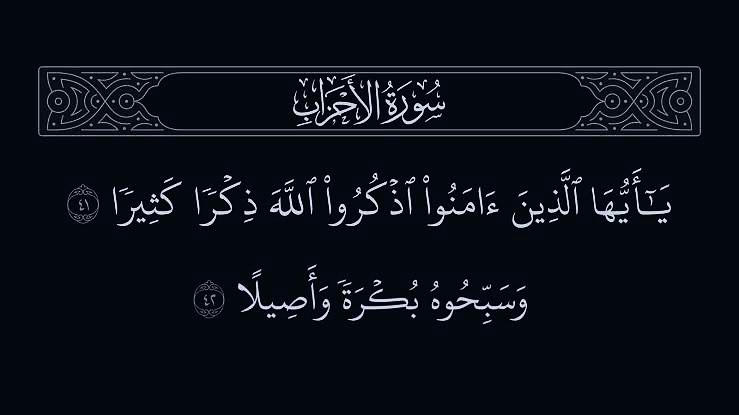 سُورَةُ الأَحْزَابِ
يَـٰٓأَيُّهَا ٱلَّذِينَ ءَامَنُوا۟ ٱذْكُرُوا۟ ٱللَّهَ ذِكْرًا كَثِيرًا ٤١
وَسَبِّحُوهُ بُكْرَةً وَأَصِيلًا ٤٢